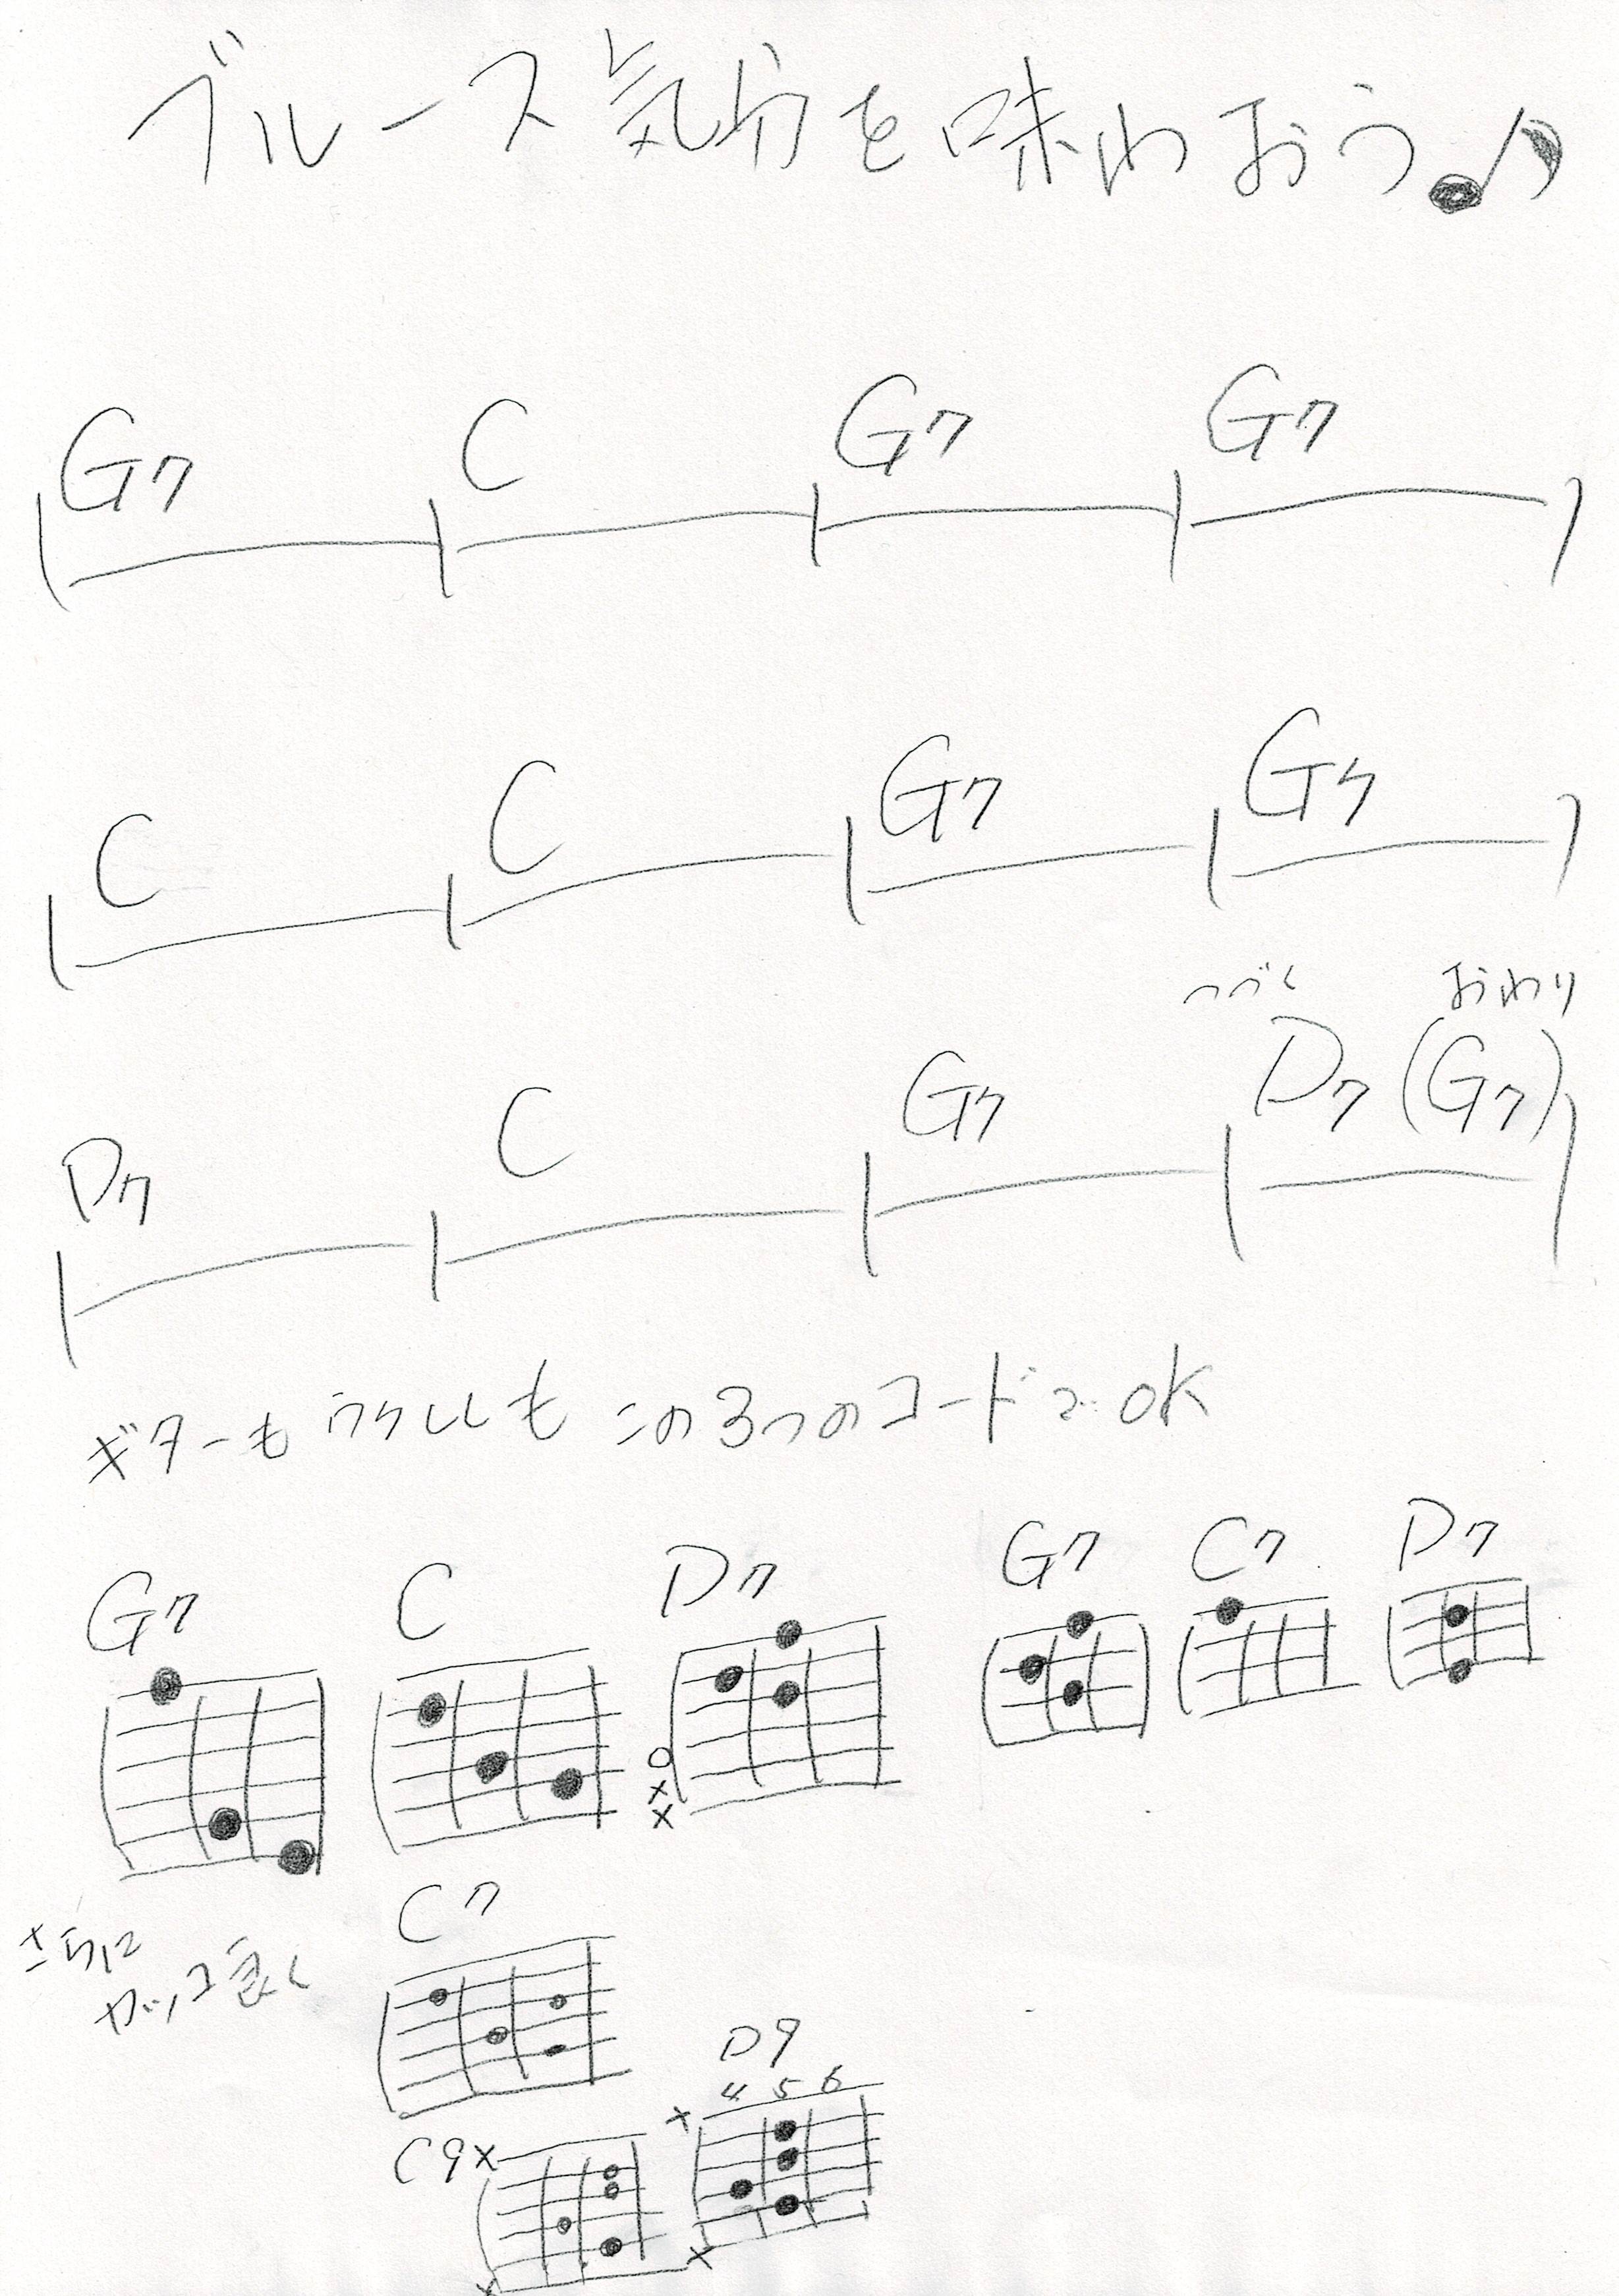 ブルース気分を味わおう♪
G7 C G7 G7
C C G7 G7
つづく おわり
D7 C G7 D7 (G7)
ギターもウクレレも この3つのコードでOK
G7 C D7 G7 C7 D7
o
x
x
C7
さらに
カッコ良く
D9
4 5 6
x
C9 x
x
x